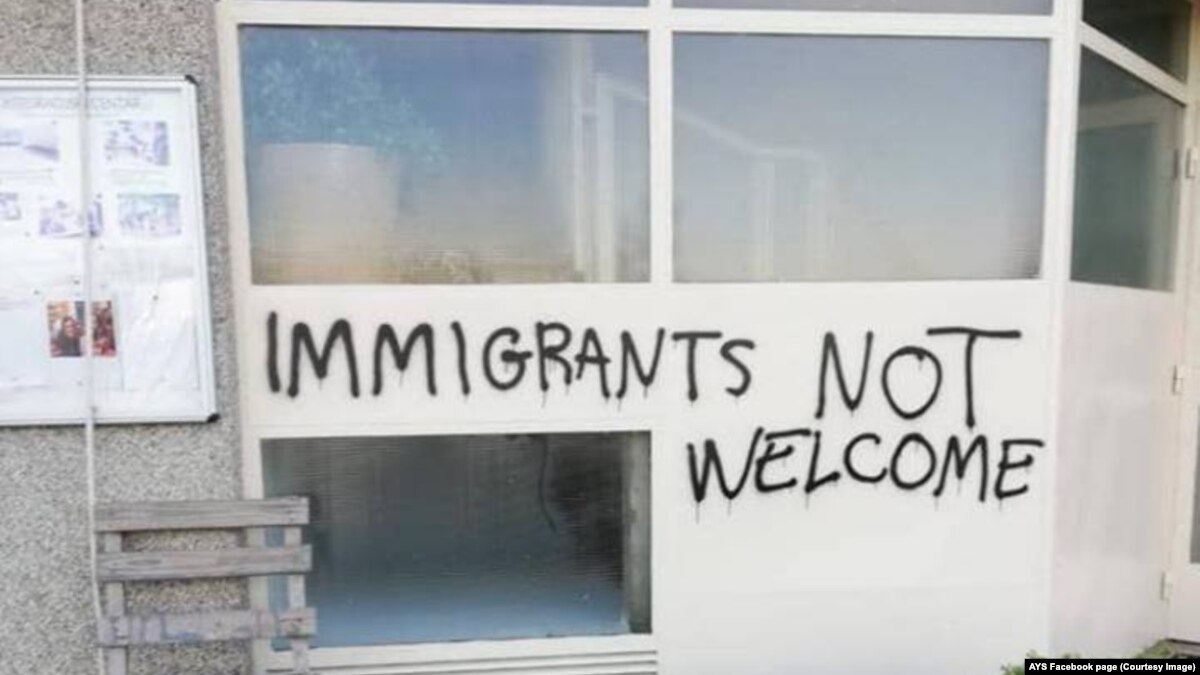 IMMIGRANTS NOT
WELCOME
AYS Facebook page (Courtesy Image)